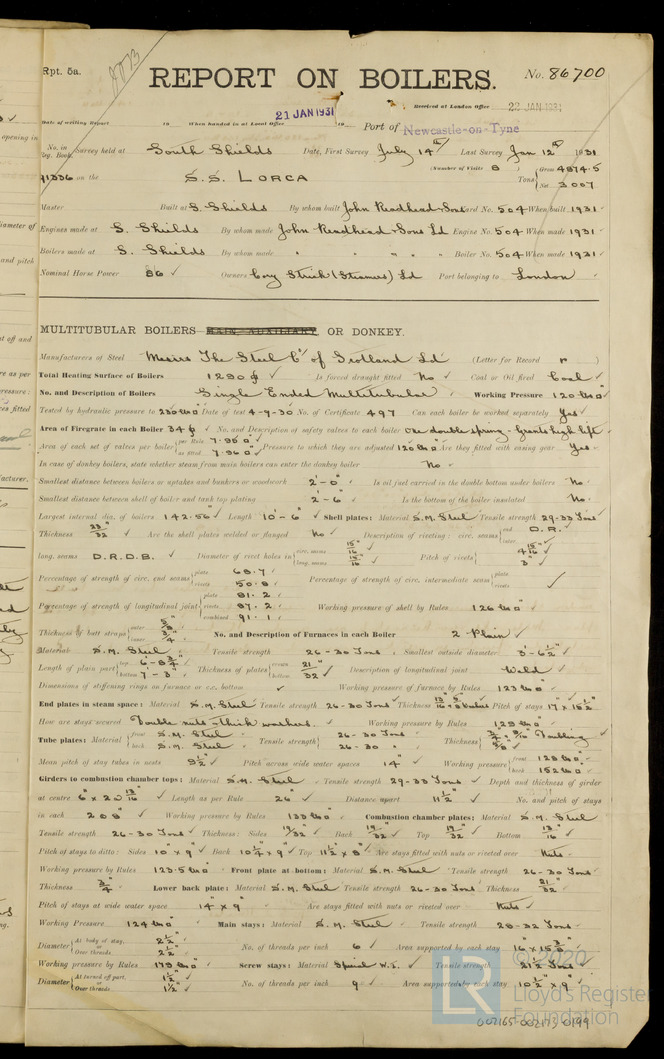 Rpt. 5a.
REPORT ON BOILERS.
No. 86700
21 JAN 1931
Received at London Office 22 JAN 1931
Date of writing Report 19 When handed in at Local Office 19 Port of Newcastle-on-Tyne
No. in Reg. Book. Survey held at South Shields Date, First Survey July 14th Last Survey Jan 12th 1931
(Number of Visits 8
91556 on the S.S. LORCA Tons Gross 4874.5 Net 3007
Master Built at S. Shields By whom built John Readhead & Sons Yard No. 504 When built 1931
Engines made at S. Shields By whom made John Readhead & Sons Ld Engine No. 504 When made 1931
Boilers made at S. Shields By whom made " " " " Boiler No. 504 When made 1931
Nominal Horse Power 86 Owners Cory Strick (Steamers) Ld Port belonging to London
MULTITUBULAR BOILERS MAIN, AUXILIARY, OR DONKEY.
Manufacturers of Steel Messrs The Steel Co of Scotland Ld (Letter for Record r )
Total Heating Surface of Boilers 1290 Is forced draught fitted No Coal or Oil fired Coal
No. and Description of Boilers Single Ended Multitubular Working Pressure 120 lbs
Tested by hydraulic pressure to 230 lbs Date of test 4-9-30 No. of Certificate 497 Can each boiler be worked separately Yes
Area of Firegrate in each Boiler 34 No. and Description of safety valves to each boiler one double spring - Grants high lift
Area of each set of valves per boiler per Rule 7.95 as fitted 7.96 Pressure to which they are adjusted 120 lbs Are they fitted with easing gear Yes
In case of donkey boilers, state whether steam from main boilers can enter the donkey boiler No
Smallest distance between boilers or uptakes and bunkers or woodwork 2'-0" Is oil fuel carried in the double bottom under boilers No
Smallest distance between shell of boiler and tank top plating 2'-6" Is the bottom of the boiler insulated No
Largest internal dia. of boilers 142.56" Length 10'-6" Shell plates: Material S.M. Steel Tensile strength 29-33 Tons
Thickness 23/32" Are the shell plates welded or flanged No Description of riveting: circ. seams end D.R. inter.
long. seams D.R.D.B. Diameter of rivet holes in circ. seams 15/16" long. seams 15/16" Pitch of rivets
Percentage of strength of circ. end seams plate 68.7 rivets 50.8 Percentage of strength of circ. intermediate seam plate rivets
Percentage of strength of longitudinal joint plate 81.2 rivets 87.2 combined 91.1 Working pressure of shell by Rules 126 lbs
Thickness of butt straps outer 5/8" inner 3/4" No. and Description of Furnaces in each Boiler 2 Plain
Material S. M. Steel Tensile strength 26-30 Tons Smallest outside diameter 3'-6½"
Length of plain part top 6'-8¾" bottom 7'-3" Thickness of plates crown bottom 21/32" Description of longitudinal joint Weld
Dimensions of stiffening rings on furnace or c.c. bottom Working pressure of furnace by Rules 123 lbs
End plates in steam space: Material S.M. Steel Tensile strength 26-30 Tons Thickness Pitch of stays 17" x 15½"
How are stays secured Double nuts - thick washers. Working pressure by Rules 129 lbs
Tube plates: Material front S.M. Steel back S.M. Steel Tensile strength 26-30 Tons 26-30 " Thickness Doubling 5/8"
Mean pitch of stay tubes in nests 9½" Pitch across wide water spaces 14" Working pressure front 129 lbs back 152 lbs
Girders to combustion chamber tops: Material S.M. Steel Tensile strength 29-33 Tons Depth and thickness of girder
at centre 6" x 2 @ 13/16" Length as per Rule 26" Distance apart 11½" No. and pitch of stays
in each 2 @ 8" Working pressure by Rules 133 lbs Combustion chamber plates: Material S.M. Steel
Tensile strength 26-30 Tons Thickness: Sides 19/32" Back 19/32" Top 19/32" Bottom 13/16"
Pitch of stays to ditto: Sides 10" x 9" Back 10¼" x 9" Top 11½" x 8" Are stays fitted with nuts or riveted over Nuts
Working pressure by Rules 123.5 lbs Front plate at bottom: Material S.M. Steel Tensile strength 26-30 Tons
Thickness 3/4" Lower back plate: Material S.M. Steel Tensile strength 26-30 Tons Thickness 21/32"
Pitch of stays at wide water space 14" x 9" Are stays fitted with nuts or riveted over Nuts
Working Pressure 124 lbs Main stays: Material S.M. Steel Tensile strength 28-32 Tons
Diameter At body of stay, or Over threads 2½" 2½" No. of threads per inch 6 Area supported by each stay 16" x 15⅜"
Working pressure by Rules 179 lbs Screw stays: Material Special W.I. Tensile strength 21½ Tons
Diameter At turned off part, or Over threads 1½" 1½" No. of threads per inch 9 Area supported by each stay 10½" x 9"
© 2020
Lloyd's Register
Foundation
002165-002173-0199